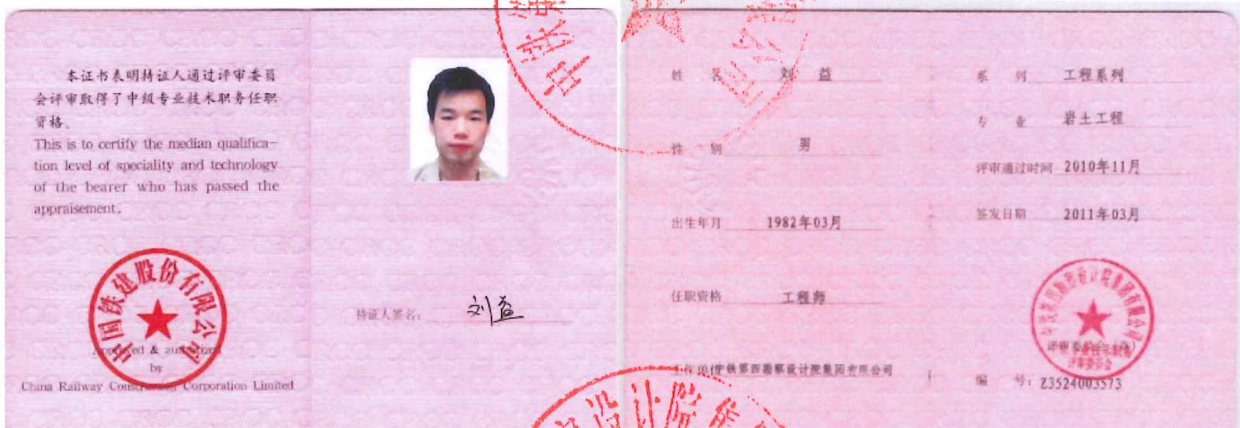 本证书表明持证人通过评审委员
会评审取得了中级专业技术职务任职
资格。
This is to certify the median qualifica-
tion level of speciality and technology
of the bearer who has passed the
appraisement.
中国铁建股份有限公司
Approved & authorized
by
China Railway Construction Corporation Limited
持证人签名: 刘益
姓 名 刘 益
性 别 男
出生年月 1982年03月
任职资格 工程师
工作单位 中铁第四勘察设计院集团有限公司
系 列 工程系列
专 业 岩土工程
评审通过时间 2010年11月
签发日期 2011年03月
中铁第四勘察设计院集团有限公司
评审委员会(章)
评审委员会
编 号: Z3524003573
设计院集